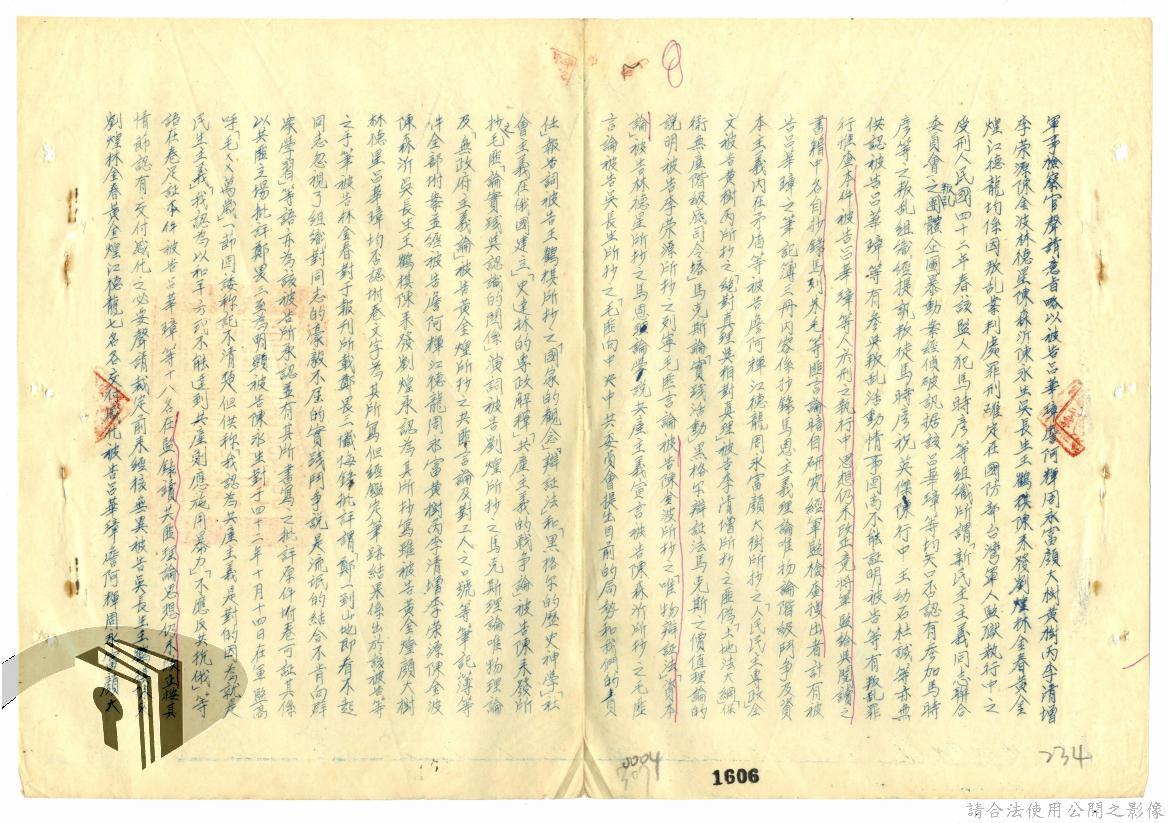 軍事檢察官聲請意旨略以被告呂華璋詹阿輝周永富顏大樹黃樹丙李清增
李榮源陳金波林德星陳森沂陳永生吳長生王鶴棋陳禾發劉煌林金春黃金
煌江德龍均係因叛乱業判處罪刑確定在國防部台灣軍人監獄執行中之
受刑人民國四十二年春該監人犯馬時彥等組織所謂「新民主主義同志聯合
委員會」之叛乱團體企圖暴動案經偵破訊據該呂華璋等均矢口否認有參加馬時
彥等之叛乱組織經提訊叛徒馬時彥祝英傑行中王動石杜誠等亦無
供認被告呂華璋等有參與叛乱活動情事固尚不能証明被告等有叛乱罪
行惟查本件被告呂華璋等人於刑之執行中思想仍未改正竟將軍監給與閱讀之
書籍中各自抄錄馬列朱毛等匪言論藉自研究經軍監檢查搜出者計有被
告呂華璋之筆記簿三册内容係抄錄馬恩主義理論唯物論階級鬥爭及資
本主義内在矛盾等被告詹阿輝江德龍周永富顏大樹所抄之「人民民主專政」全
文被告黃樹丙所抄之「絕對真理與相對真理」被告李清增所抄之匪偽土地法大綱「保
衛無產階級底司令塔」馬克斯論「實踐活動」黑格尔辯証法馬克斯之價值理論的
說明被告李榮源所抄之列寧毛匪言論被告陳金波所抄之「唯物辯証法」「資本
論」被告林德星所抄之馬恩經論學說共產主義宣言被告陳森沂所抄之毛匪
言論被告吳長生所抄之「毛匪向中共中央委員會提出目前的局勢和我們的責
任」報告詞被告王鶴棋所抄之「國家的觀念」「辯証法」和「黑格尔的歷史神學」「社
會主義在俄國建立」「史達林的專政解釋」「共產主義的戰爭論」被告陳禾發所
抄之毛匪「論實踐與認識的關係」演詞被告劉煌所抄之馬克斯理論唯物理論
及「無政府主義論」被告黃金煌所抄之共匪言論及對工人之口號等筆記簿等
件全部附卷並經被告詹阿輝江德龍周永富黃樹丙李清增李榮源陳金波
陳森沂吳長生王鶴棋陳禾發劉煌承認為其所抄寫雖被告黃金煌顏大樹
林德星呂華璋均否認附卷文字為其所寫但經鑑定筆跡結果係出於該被告等
之手筆被告林金春對于報刊所載鄭畏三懺悔錄批評謂「鄭一到山地即看不起
同志忽視了組織對同志的豪毅不屈的實踐鬥爭說是流氓的結合不肯向群
眾學習」等語亦為該被告所承認並有其所書寫之批評原件附卷可証其係
以共匪立場批評鄭畏三至為明顯被告陳永生對于四十二年十月十四日在軍監高
呼「毛××萬歲」一節固諉称記不清楚但供称「我認為共產主義是對的因為就是
民生主義」「我認為以和平方式不能達到共產則應施用暴力」「不應反共抗俄」等
語在卷足証本件被告呂華璋等十八名在監錄讀共匪理論思想仍未改正按其
情節認有交付感化之必要聲請裁定前來經核無異被告吳長生王鶴棋
劉煌林金春黃金煌江德龍七名各交付感化被告呂華璋詹阿輝周永富顏大
1606
0004
307
234
請合法使用公開之影像